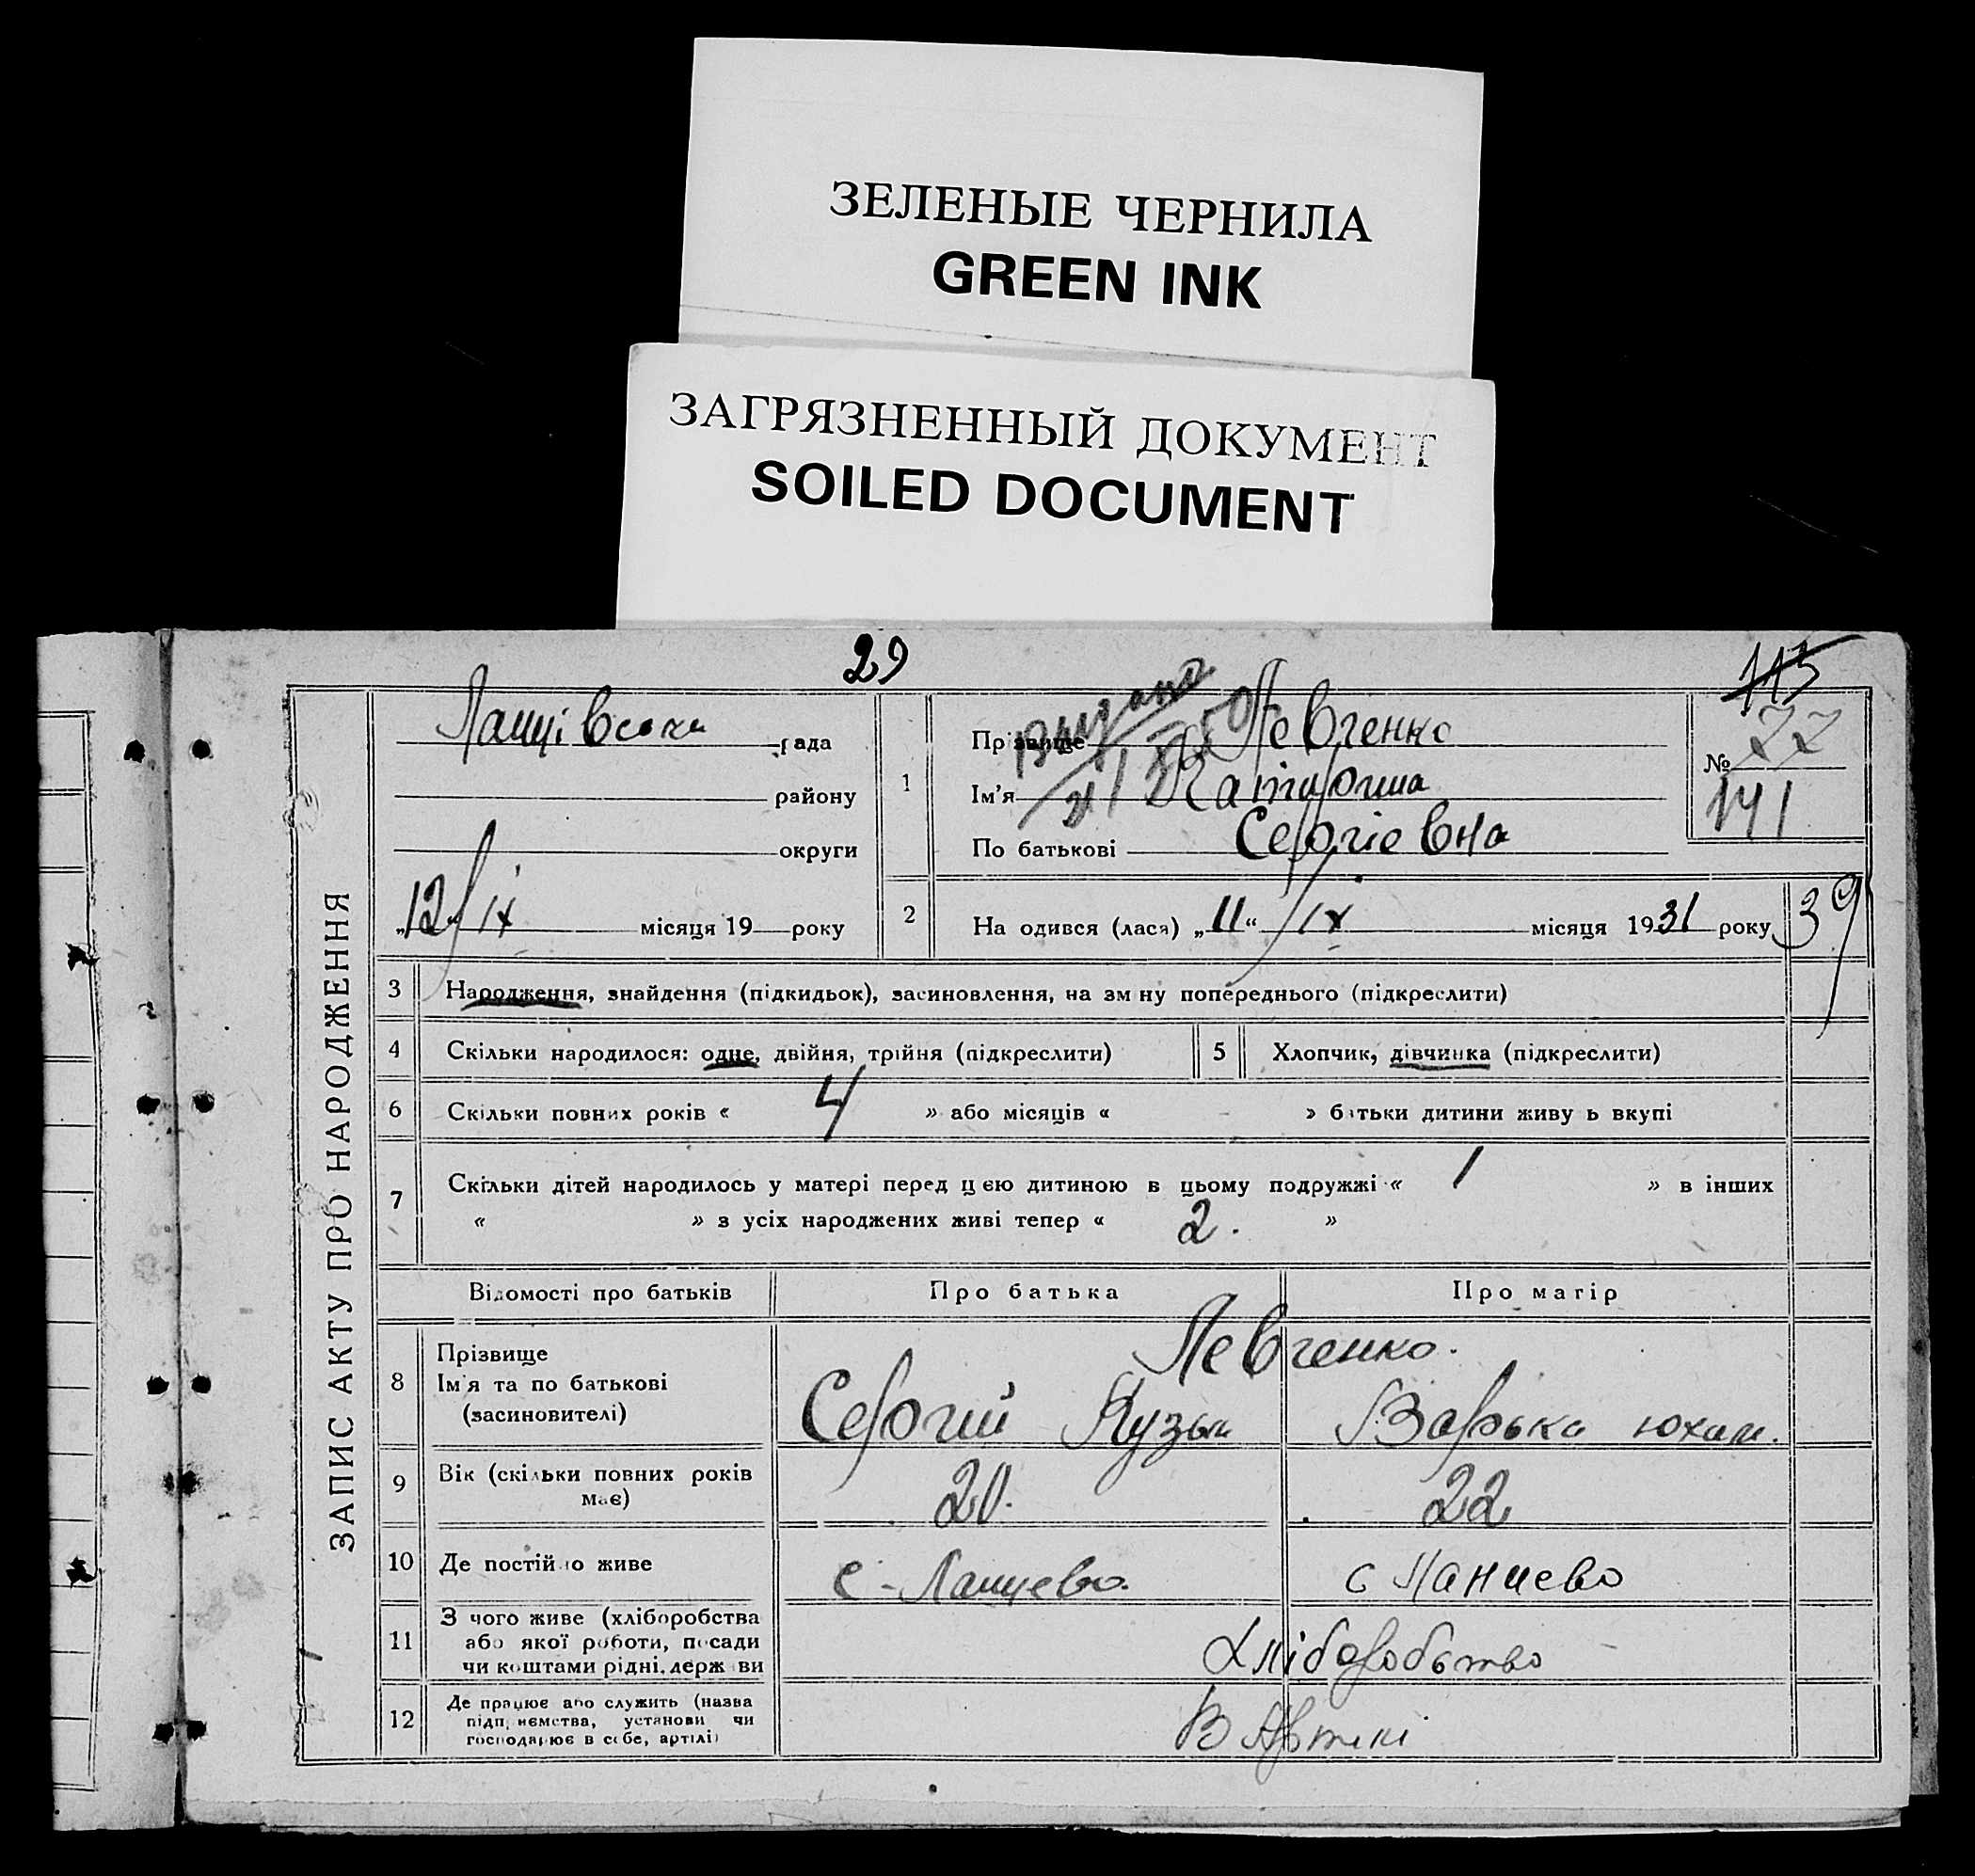 ЗЕЛЕНЫЕ ЧЕРНИЛА
GREEN INK
ЗАГРЯЗНЕННЫЙ ДОКУМЕНТ
SOILED DOCUMENT
29
115
ЗАПИС АКТУ ПРО НАРОДЖЕННЯ
рада
району
округи
„12 / ІХ місяця 19 року
1
Прізвище Левченко
Ім'я
По батькові Сергіевна
№ 77
141
2
На одився (лася) „11“ / ІХ місяця 1931 року
39
3 Народження, знайдення (підкидьок), засиновлення, на зм ну попереднього (підкреслити)
4 Скільки народилося: одне, двійня, трійня (підкреслити)
5 Хлопчик, дівчинка (підкреслити)
6 Скільки повних років « 4 » або місяців « » батьки дитини живу ь вкупі
7 Скільки дітей народилось у матері перед цею дитиною в цьому подружжі « 1 » в інших
« » з усіх народжених живі тепер « 2. »
Відомості про батьків Про батька Про матір
8 Прізвище
Ім'я та по батькові
(засиновителі)
Левченко.
Сергий Кузьм Варька Юхим.
9 Вік (скільки повних років
має)
20. 22
10 Де постійно живе
11 З чого живе (хліборобства
або якої роботи, посади
чи коштами рідні, держ ви
Хліборобство
12 Де працює або служить (назва
підп иємства, установи чи
господарює в себе, артілі)
В Артілі